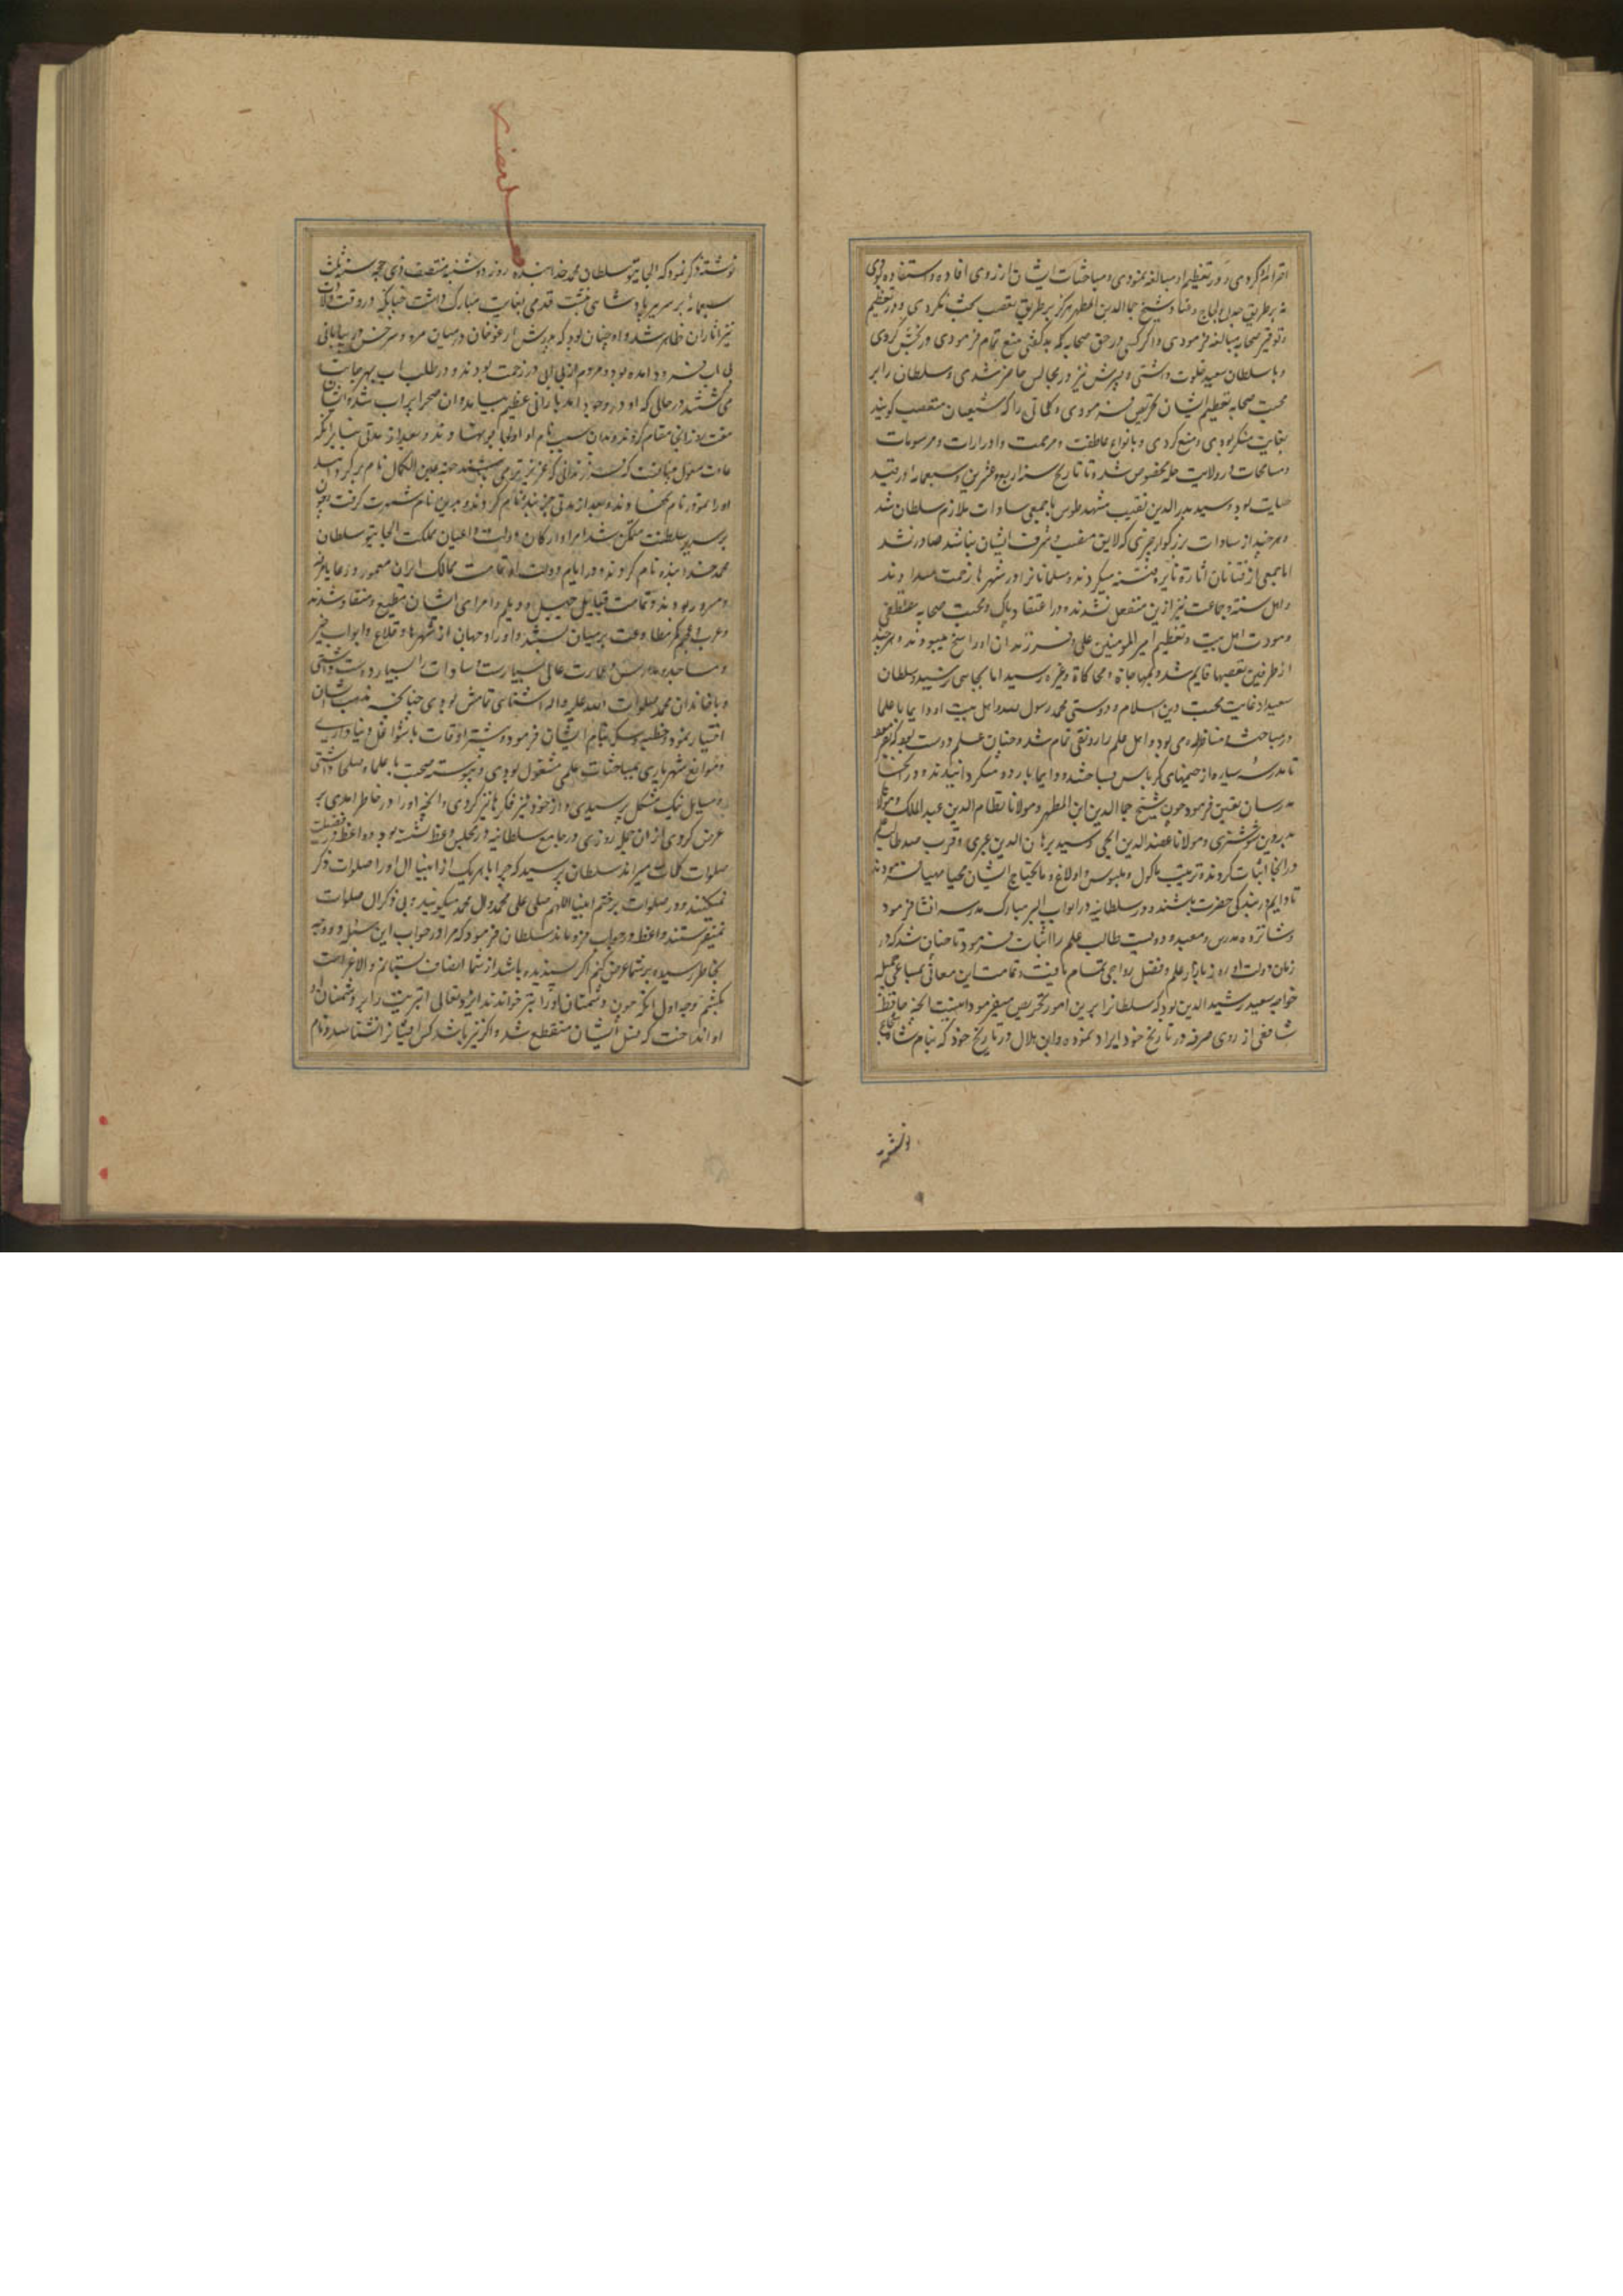 احترام کردی و در تعظیم او مبالغه نمودی و مباحثات ایشان از روی افاده و استفاده بودی
نه بر طریق جدل و لجاج و عناد و شیخ جمال الدین المطهر هرگز بر طریق تعصب بحث نکردی و در تعظیم
و توقیر صحابه مبالغه فرمودی و اگر کسی در حق صحابه کلمه بد گفتی منع تمام فرمودی و رنجش کردی
و با سلطان سعید خلوت داشتی و پسرش نیز در مجالس حاضر شدی و سلطان را بر
محبت صحابه تعظیم ایشان تحریص فرمودی و کلماتی را که شیعیان متعصب گویند
بغایت منکر بودی و منع کردی و بانواع عاطفت و مرحمت و ادرارات و مرسومات
و مسامحات در ولایت حله مخصوص شد و تا تاریخ سنه اربع و عشرین و سبعمایه در قید
حیات بود و سید بدر الدین نقیب مشهد طوس با جمعی سادات ملازم سلطان شد
و هر چند از سادات بزرگوار چیزی که لایق منصب و شرف ایشان نباشد صادر نشد
اما جمعی از فتانان اثارة نایره فتنه میکردند و مسلمانانرا در شهرها زحمت میدادند
و اهل سنة و جماعت نیز ازین منفعل نشدند و در اعتقاد پاک و محبت صحابه مصطفی
و مودت اهل بیت و تعظیم امیر المومنین علی و فرزندان او راسخ میبودند و هر چند
از طرفین تعصبها قایم شد و بمهاجاة و محاکاة و غیره رسید اما بجایی نرسید و سلطان
سعید از غایت محبت دین اسلام و دوستی محمد رسول الله و اهل بیت او دایما با علما
در مباحثه و مناظره می بود و اهل علم را رونقی تمام شد و چنان علم دوست بود که بفرمود
تا مدرسه سیاره از خیمهای کرباس بساختند و دایما با اردو میگردانیدند و در انجا
مدرسان تعیین فرمود چون شیخ جمال الدین ابن المطهر و مولانا نظام الدین عبد الملک و مولانا
بدر الدین شوشتری و مولانا عضد الدین ایجی و سید برهان الدین عبری و قرب صد طالب علم
در انجا اثبات کردند و ترتیب ماکول و ملبوس و اولاغ و مایحتاج ایشان مهیا فرمودند
تا دایم در بندگی حضرت باشند و در سلطانیه در ابواب البر مبارک مدرسه انشا فرمود
و شانزده مدرس و معید و دویست طالب علم را اثبات فرمود تا چنان شد که در
زمان دولت او روز بازار علم و فضل رواجی تمام یافت و تمامت این معانی بمساعی جمیله
خواجه سعید رشید الدین بود که سلطانرا برین امور تحریص میفرمود اینست انچه حافظ
شافعی از روی صرفه در تاریخ خود ایراد نموده و ابن هلال در تاریخ خود که بنام شاه شجاع
نوشته
نوشته ذکر نموده که الجایتو سلطان محمد خدابنده روز دوشنبه منتصف ذی حجه سنه ثلث
سبعمایه بر سریر پادشاهی نشست قدمی بغایت مبارک داشت چنانکه در وقت ولادت
نیز اثار ان ظاهر شد و ان چنان بود که پدرش ارغون خان در میان مرو و سرخس در بیابانی
بی اب فرود امده بود و مردم از بی ابی در زحمت بودند و در طلب اب بهر جانب
می گشتند در حالی که او در وجود امد بارانی عظیم بیامد و ان صحرا پر اب شد و ایشان
هفت روز انجا مقام کردند و بدان سبب نام او اولجا بوقا نهادند و بعد از مدتی بنابر انکه
عادت مغول چنانست که فرزندانی که عزیزتر می باشند جهة عین الکمال نام بگردانند
او را تمودر نام نهادند و بعد از مدتی خربنده نام کردند و بدین نام شهرت گرفت و چون
بر سریر سلطنت متمکن شد امرا و ارکان دولت و اعیان مملکت الجایتو سلطان
محمد خدابنده نام کردند و در ایام دولت او تمامت ممالک ایران معمور و رعایا مرفه
و مسرور بودند و تمامت قبایل جبل و دیلم و امرای ایشان مطیع و منقاد شدند
و عرب و عجم کمر مطاوعت بر میان بستند و او را در جهان از شهرها و قلاع و ابواب خیر
و مساجد و مدارس و عمارت عالی بسیارست و سادات را بسیار دوست داشتی
و با خاندان محمد صلوات الله علیه و اله اشنایی تمامش بودی چنانچه مذهب شان
اختیار نمود و خطبه و سکه بنام ایشان فرمود و بیشتر اوقات با شواغل دنیا داری
و موانع شهریاری بمباحثات علمی مشغول بودی و پیوسته صحبت با علما و صلحا داشتی
و مسایل نیک مشکل پرسیدی و از خود نیز فکرها نیز کردی و انچه او را در خاطر امدی بر
عرض کردی از ان جمله روزی در جامع سلطانیه در مجلس وعظ نشسته بود و واعظ در فضیلت
صلوات کلمات میراند سلطان پرسید که چرا با هر یک از انبیا ال او را صلوات ذکر
نمیکنند و در صلوات بر ختم انبیا اللهم صلی علی محمد و ال محمد میگویند و بی ذکر ال صلوات
نمیفرستند واعظ در جواب فرو ماند سلطان فرمود که مرا در جواب این سئوال دو وجه
بخاطر رسیده بر شما عرض کنم اگر پسندیده باشد از شما انصاف بستانم و الا غرامت
بکشم وجه اول انکه چون دشمنان او را ابتر خواندند ایزد تعالی ابتریت را بر دشمنان
او انداخت که نسل ایشان منقطع شد و اگر نیز باشد کس ایشانرا نشناسد و نام